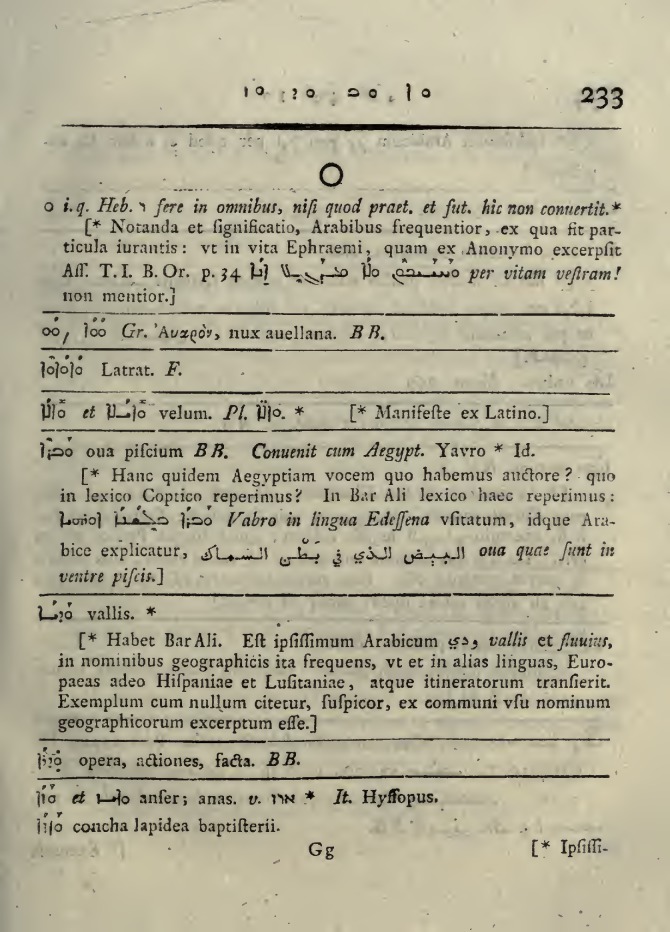 233
ܘ
ܘ i. q. Heb. ו fere in omnibus, niſi quod praet. et fut. hic non conuertit.*
[* Notanda et ſignificatio, Arabibus frequentior, ex qua fit par-
ticula iurantis: vt in vita Ephraemi, quam ex Anonymo excerpſit
Aſſ. T. I. B. Or. p. 34 per vitam veſtram!
non mentior.]
Gr. Ἀυαρὸν, nux auellana. BB.
Latrat. F.
et velum. Pl. * [* Manifeſte ex Latino.]
oua piſcium BB. Conuenit cum Aegypt. Yavro * Id.
[* Hanc quidem Aegyptiam vocem quo habemus auctore? quo
in lexico Coptico reperimus? In Bar Ali lexico haec reperimus:
Vabro in lingua Edeſſena vſitatum, idque Ara-
bice explicatur, البيض الذي في بطن السماك oua quae ſunt in
ventre piſcis.]
vallis. *
[* Habet Bar Ali. Eſt ipſiſſimum Arabicum ودي vallis et fluuius,
in nominibus geographicis ita frequens, vt et in alias linguas, Euro-
paeas adeo Hiſpaniae et Luſitaniae, atque itineratorum tranſierit.
Exemplum cum nullum citetur, ſuſpicor, ex communi vſu nominum
geographicorum excerptum eſſe.]
opera, actiones, facta. BB.
et anſer; anas. v. * It. Hyſſopus.
concha lapidea baptiſterii.
Gg [* Ipſiſſi-